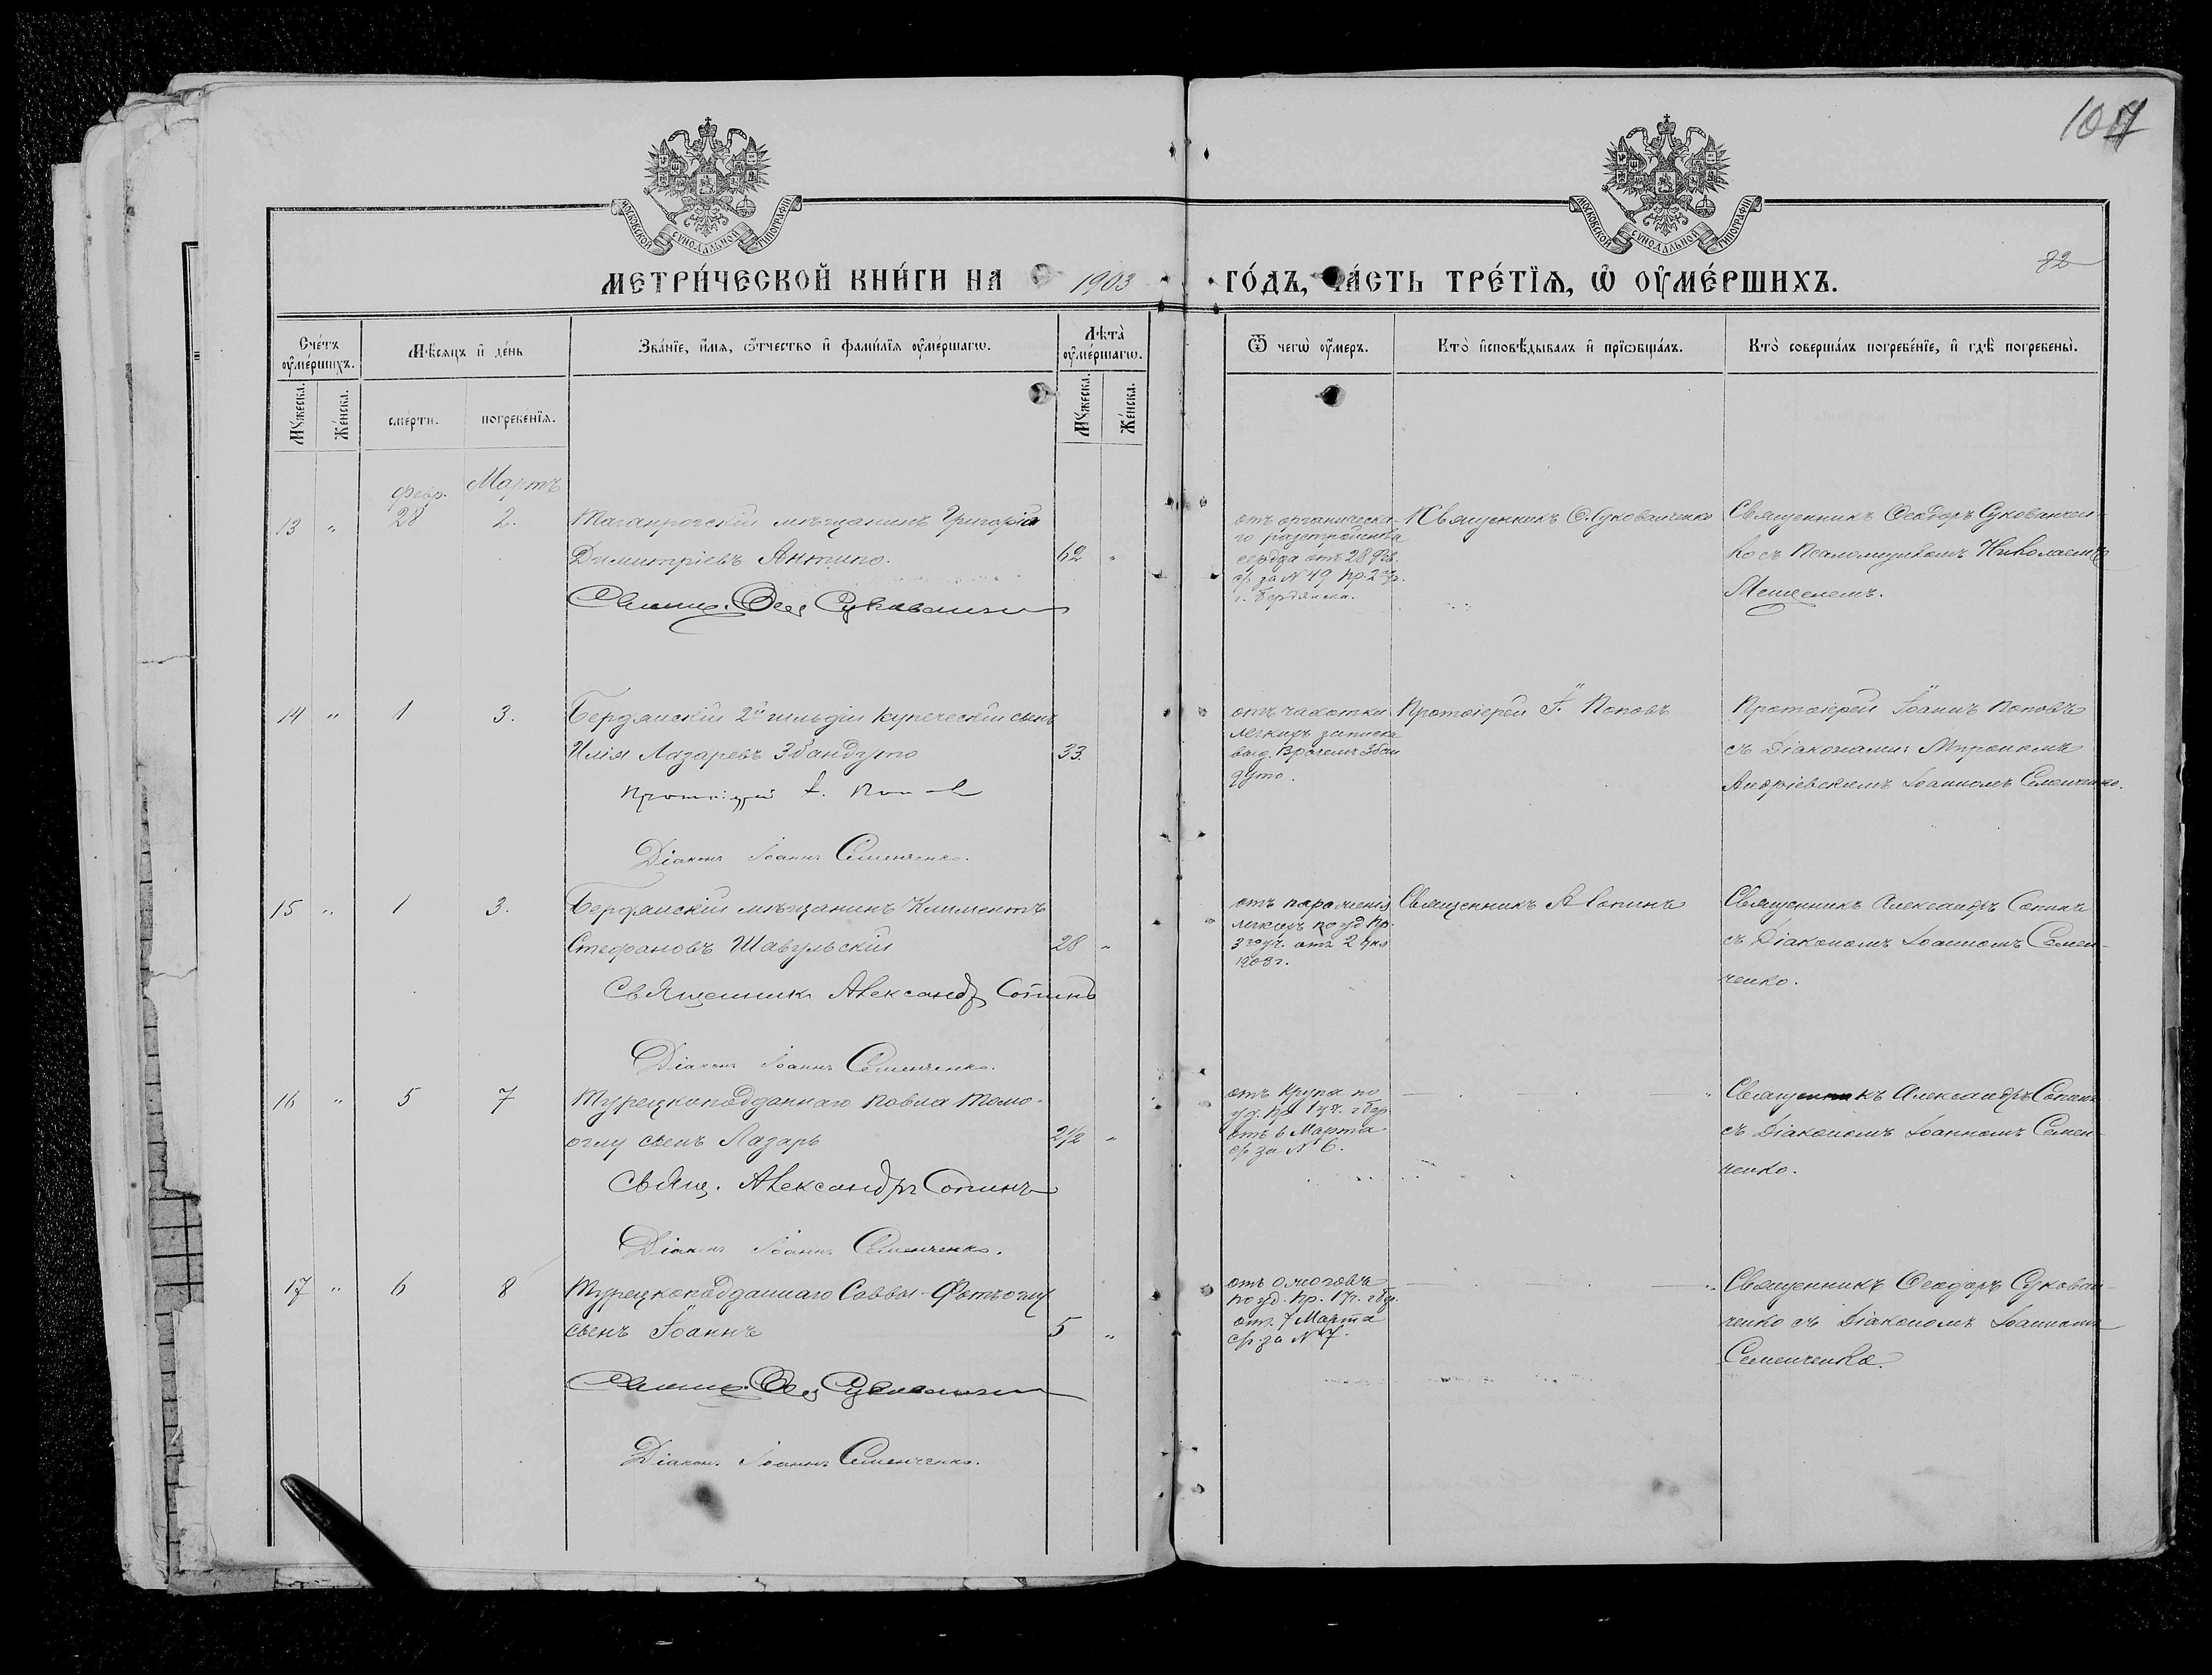 107
82
МОСКОВСКОЙ СУНОДАЛЬНОЙ ТИПОГРАФІИ
МОСКОВСКОЙ СУНОДАЛЬНОЙ ТИПОГРАФІИ
МЕТРИ́ЧЕСКОЙ КНИ́ГИ НА 1903 ГО́ДЪ, ЧА́СТЬ ТРЕ́ТЇѦ, Ѽ ОУ҆МЕ́РШИХЪ.
Сче́тъ оу҆ме́ршихъ.
Мѣ́сяцъ и҆ де́нь
Зва́нїе, и҆́мѧ, ѻ҆́тчество и҆ фами́лїѧ оу҆ме́ршагѡ.
Лѣта̀ оу҆ме́ршагѡ.
Ѿ чегѡ̀ оу҆́меръ.
Кто̀ и҆сповѣ́дывалъ и҆ прїѡбща́лъ.
Кто̀ соверша́лъ погребе́нїе, и҆ гдѣ̀ погребены̀.
Мꙋ́жеска.
Же́нска.
сме́рти.
погребе́нїѧ.
Мꙋ́жеска.
Же́нска.
Февр. Мартъ
13 „ 28 2. Таганрогскій мѣщанинъ Григорій
Димитріевъ Антипо. 62 „
отъ органическа-
го разстройства
сердца отъ 28 Фев.
с/г за № 49 пр. 2 уч.
г. Бердянска.
Священникъ Ѳ. Сукованченко
Священникъ Ѳеодоръ Сукованчен-
ко съ Псаломщикомъ Николаемъ
14 „ 1 3. Бердянскій 2й гильдіи купеческій сынъ
Илія Лазаревъ Збандуто 33.
Протоіерей І. Поповъ
Діаконъ Іоаннъ Семенченко.
отъ чахотки
легкихъ записка
выд. Врачемъ Збан
дуто.
Протоіерей І. Поповъ
Протоіерей Іоаннъ Поповъ
съ Діаконами: Мирономъ
Андріевскимъ Іоанномъ Семенченко.
15 „ 1 3. Бердянскій мѣщанинъ Климентъ
Стефановъ Шавульскій 28 „
Священникъ Александръ Сопинъ
Діаконъ Іоаннъ Семенченко.
отъ пораженія
легкихъ по уд. Пр.
3го уч. отъ 2
1903 г.
Священникъ А Сопинъ
Священникъ Александръ Сопинъ
съ Діакономъ Іоанномъ Семен-
ченко.
16 „ 5 7 Турецкоподданнаго Павла Томо-
оглу сынъ Лазарь 2½ „
Свящ. Александръ Сопинъ
Діаконъ Іоаннъ Семенченко.
отъ Крупа по
уд. Пр 1 уч. г Бер.
отъ 6 Марта
с/г за № 6.
Священникъ Александръ Сопинъ
съ Діакономъ Іоанномъ Семен-
ченко.
17 „ 6 8 Турецкоподданнаго Саввы Фотъоглу
сынъ Іоаннъ 5 „
Діаконъ Іоаннъ Семенченко.
отъ ожоговъ
по уд. Пр. 1 уч. г Бер.
отъ 7 Марта
с/г за № 7.
Священникъ Ѳеодоръ Сукован-
ченко съ Діакономъ Іоанномъ
Семенченко.